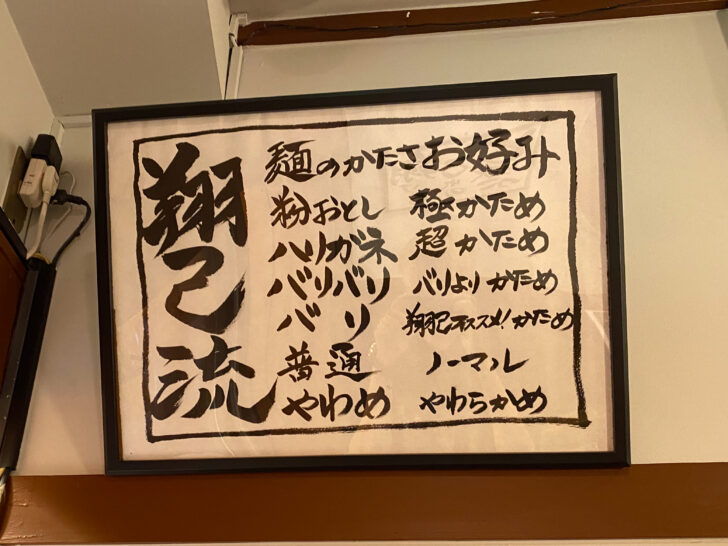 翔己流
麺のかたさお好み
粉おとし 極かため
ハリガネ 超かため
バリバリ バリよりかため
バリ 翔己オススメ!かため
普通 ノーマル
やわめ やわらかめ